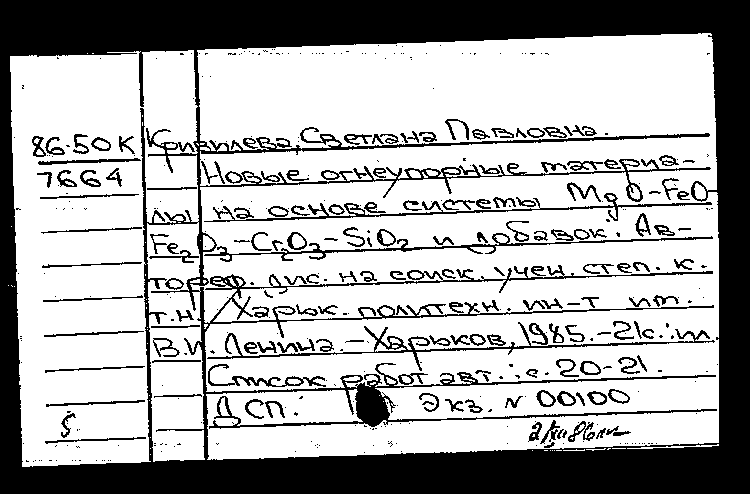 86-50К Кривилева, Светлана Павловна.
7664 Новые огнеупорные материа-
лы на основе системы MgO-FeO-
Fe2O3-Cr2O3-SiO2 и добавок: Ав-
тореф. дис. на соиск. учен. степ. к.
т.н. / Харьк. политехн. ин-т им.
В.И. Ленина. - Харьков, 1985. - 21с.: ил.
Список работ авт.: с. 20-21.
ДСП. Экз. N 00100
5